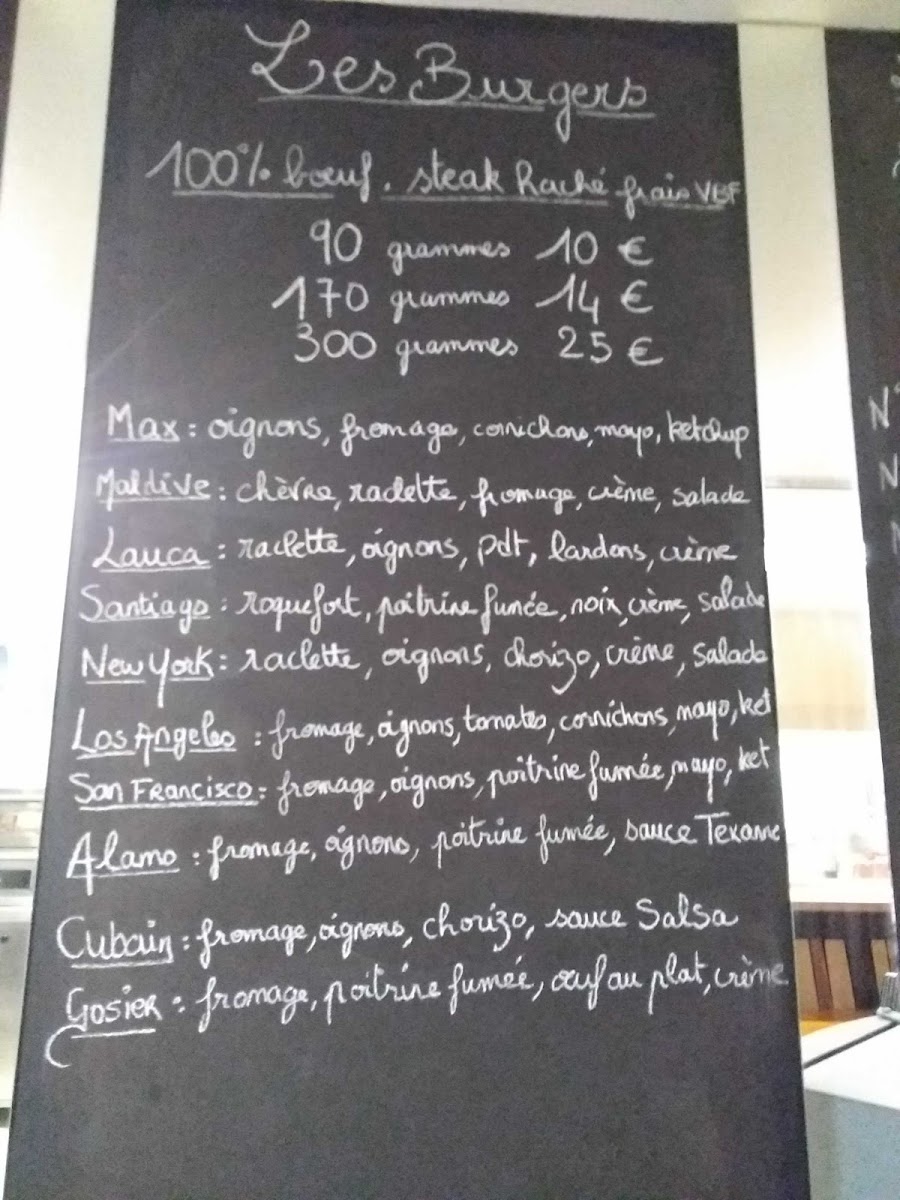 Les Burgers
100% bœuf. steak haché frais VBF
90 grammes 10 €
170 grammes 14 €
300 grammes 25 €
Max : oignons, fromage, cornichons, mayo, ketchup
Maldive : chèvre, raclette, fromage, crème, salade
Lauca : raclette, oignons, pdt, lardons, crème
Santiago : roquefort, poitrine fumée, noix, crème, salade
New York : raclette, oignons, chorizo, crème, salade
Los Angeles : fromage, oignons, tomates, cornichons, mayo, ket
San Francisco : fromage, oignons, poitrine fumée, mayo, ket
Alamo : fromage, oignons, poitrine fumée, sauce Texane
Cubain : fromage, oignons, chorizo, sauce Salsa
Gosier : fromage, poitrine fumée, œuf au plat, crème